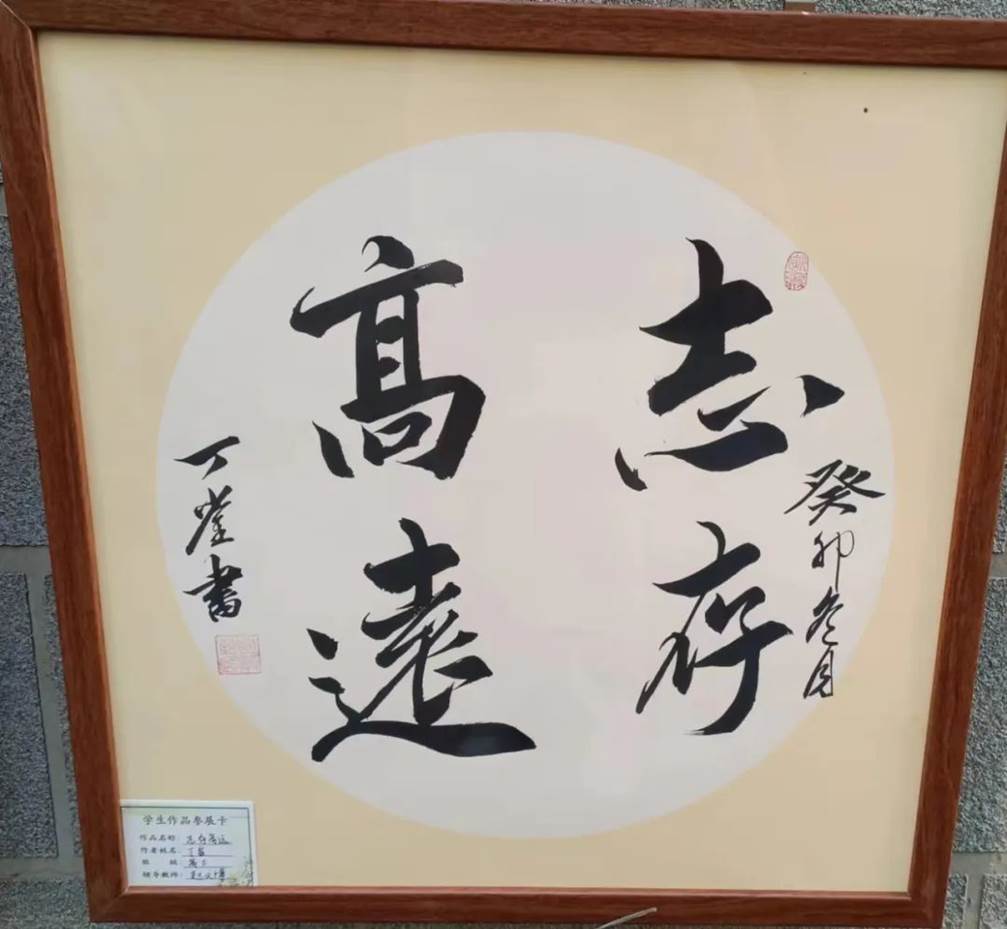 志存
高遠
癸卯冬月
丁莹書
学生作品参展卡
作品名称：志存高远
作者姓名：丁莹
班 级：
辅导教师：